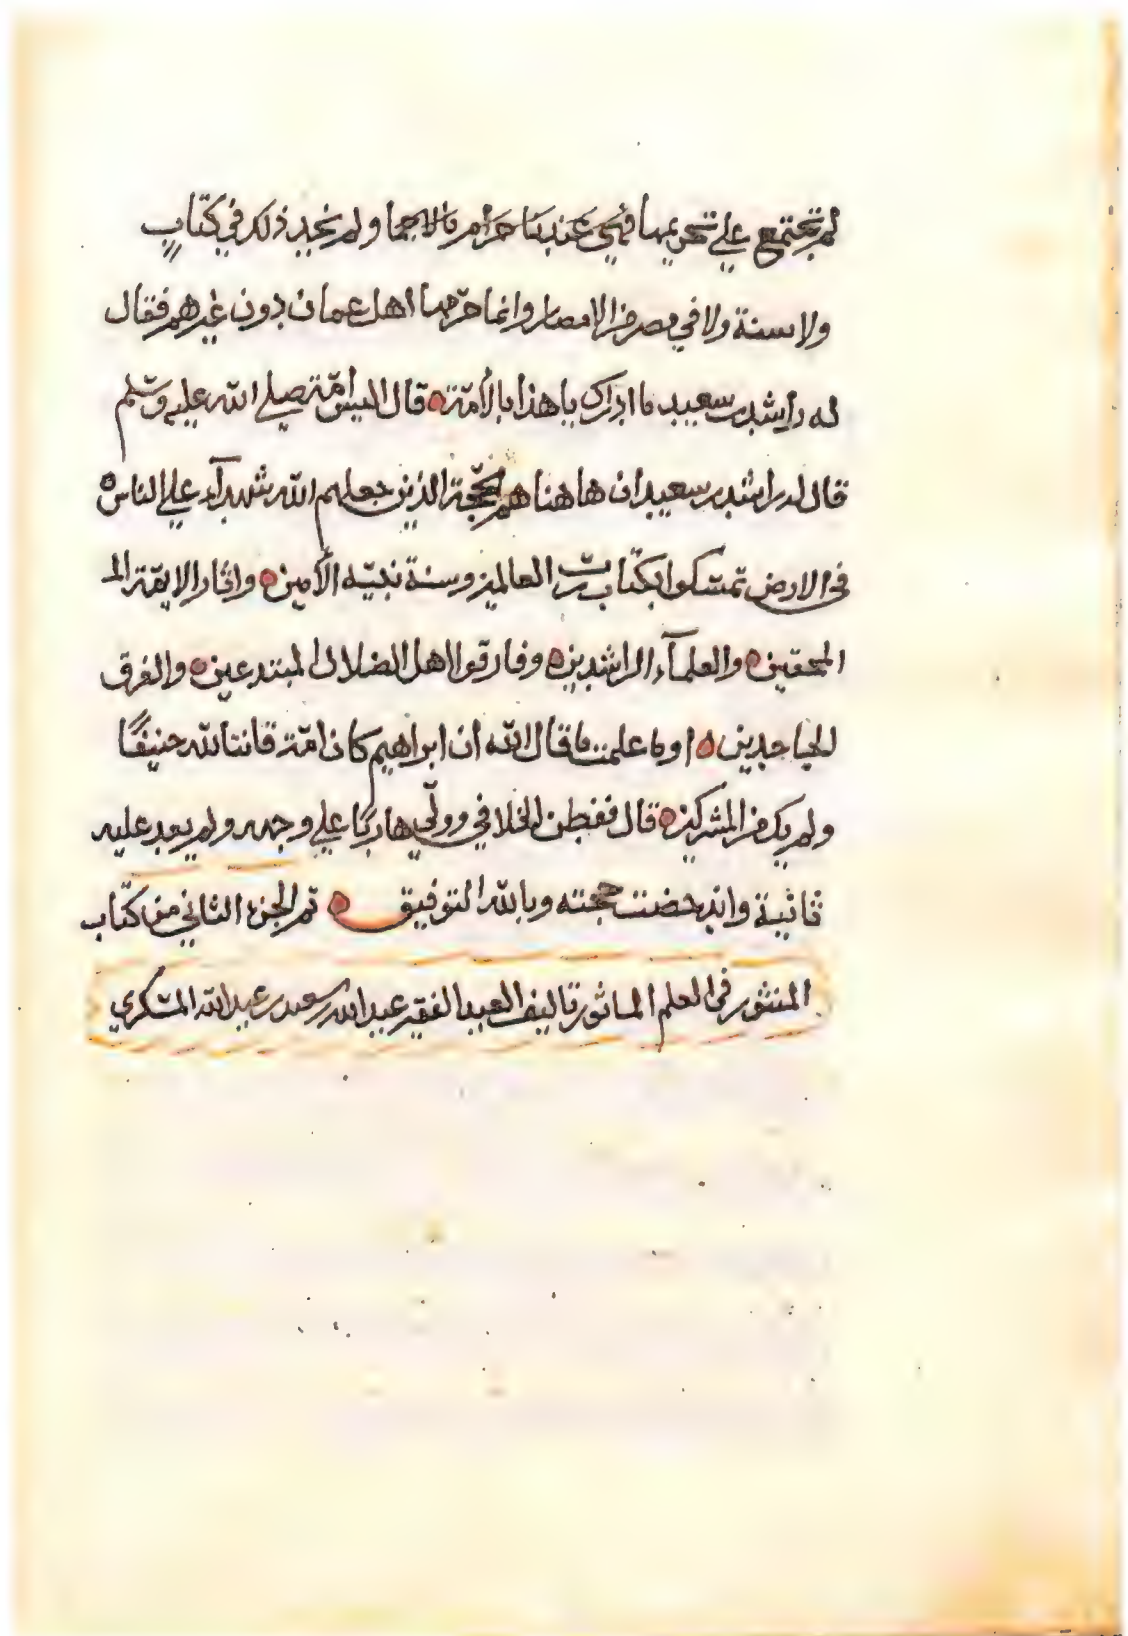 لم تجتمع علي تحريمها فهي عندنا حرام بالاجما ولم نجد ذلك في كتابٍ
ولا سنة ولا في مصر من الامصار وانما حرّمها اهل عمان دون غيرهم فقال
له راشد بن سعيد ما ادراك يا هذا بالأمّة قال اليس امّة صلي الله عليه وسّلم
قال له راشد بن سعيد ان هاهنا هم الحجّة الذين جعلهم الله شهدآء علي الناس
في الارض تمسّكوا بكتاب ربّ العالمين وسنة نبيّه الأمين واثار الايمّة الم
المحقين والعلمآء الراشدين وفارقوا اهل الضلال المبتدعين والفرق
الجاحدين اوما علمت ما قال الله ان ابراهيم كان امّة قانتا لله حنيفًا
ولم يك من المشركين قال ففطن الخلافي وولّي هاربًا علي وجهه ولم يعد عليه
ثانية واندحضت حجته وبالله التوفيق تم الجزء الثاني من كتاب
المنثور في العلم الماثور تاليف العبد الفقير عبدالله بن سعيد بن عبدالله المشكري